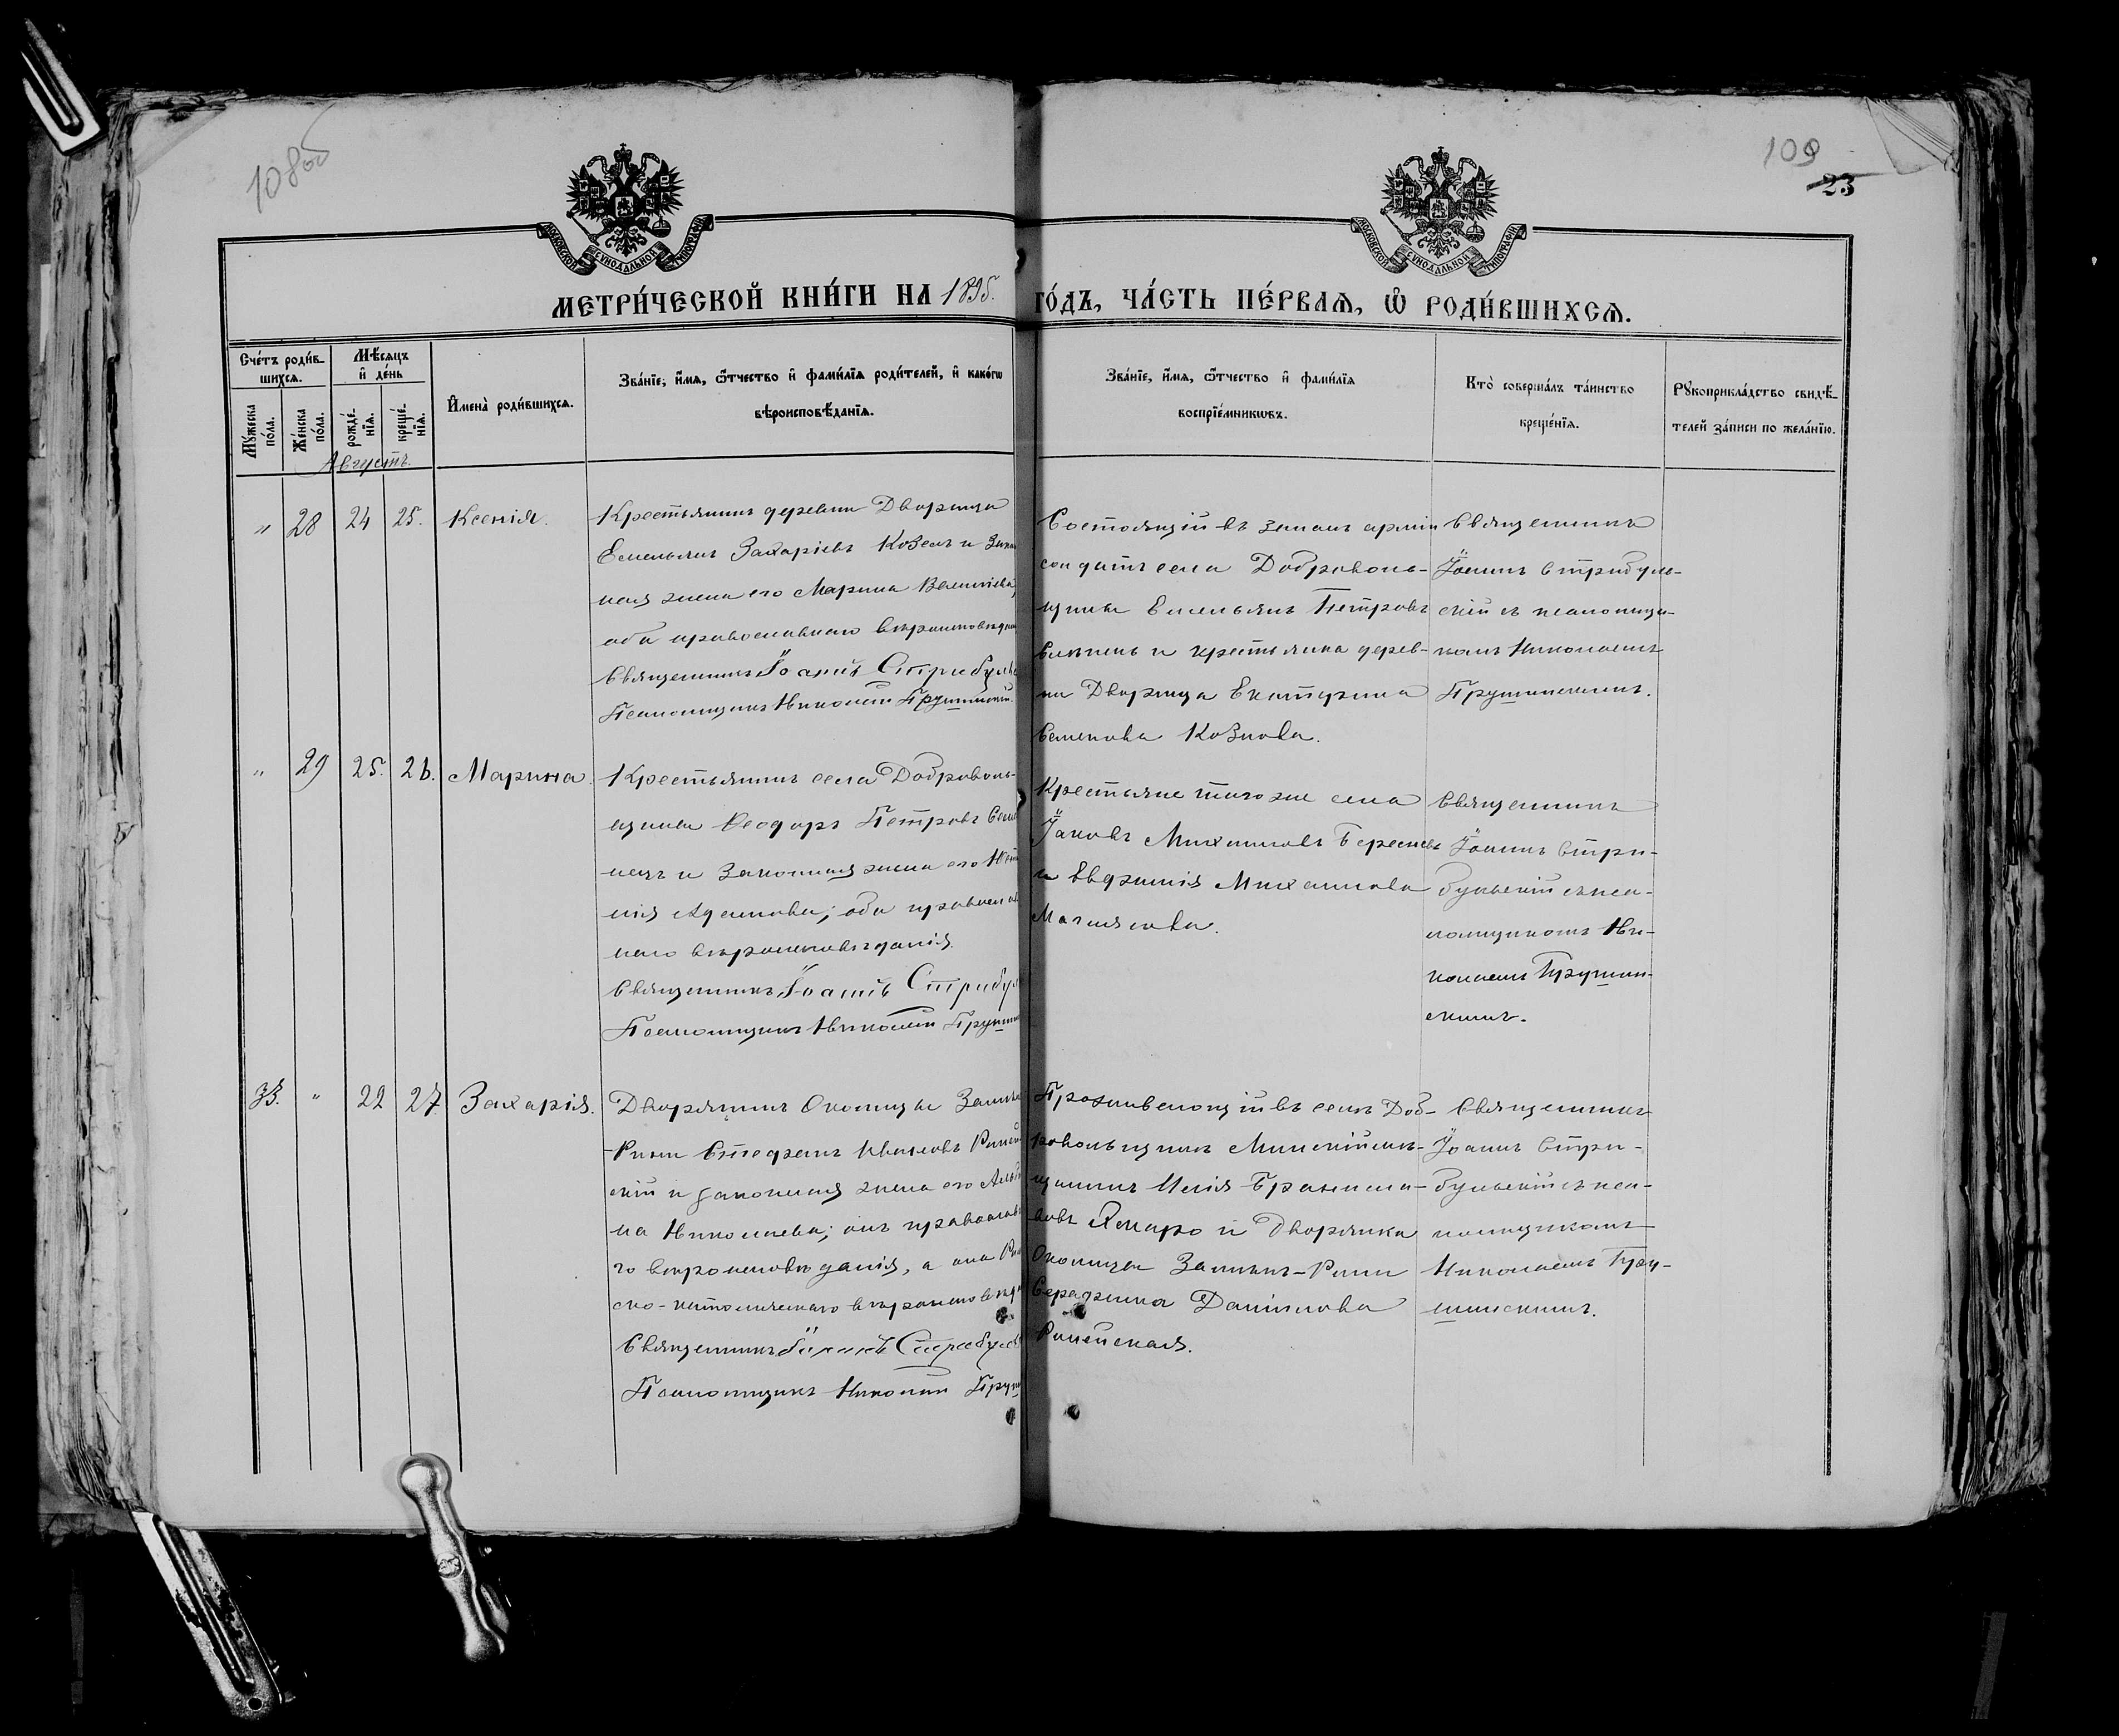 108об
109
23
МОСКОВСКОЙ СУНОДАЛЬНОЙ ТИПОГРАФІИ
МОСКОВСКОЙ СУНОДАЛЬНОЙ ТИПОГРАФІИ
МЕТРИ́ЧЕСКОЙ КНИ́ГИ НА 1895. ГО́ДЪ, ЧА́СТЬ ПЕ́РВАѦ, Ѽ РОДИ́ВШИХСѦ.
Сче́тъ роди́в-
шихсѧ.
Мѣ́сѧцъ
и҆ де́нь
И҆мена̀ роди́вшихсѧ.
Зва́нїе, и҆́мѧ, ѻ҆́тчество и҆ фами́лїѧ роди́телей, и҆ како́гѡ
вѣроисповѣ́данїѧ.
Зва́нїе, и҆́мѧ, ѻ҆́тчество и҆ фами́лїѧ
воспрїе́мникѡвъ.
Кто̀ соверша́лъ та́инство
креще́нїѧ.
Рꙋкоприкла́дство свидѣ́-
телей за́писи по жела́нїю.
Мꙋ́жеска
по́ла.
Же́нска
по́ла.
рожде́-
нїѧ.
креще́-
нїѧ.
Августъ.
" 28 24 25. Ксенія.
Крестьянинъ деревни Дворища
Емельянъ Захаріевъ Козелъ и закон
ная жена его Марина
оба православнаго вѣроисповѣдан
Священникъ Іоаннъ Стрибульс
Псаломщикъ Николай Прушинскій.
Состоящій въ запасѣ арміи
солдатъ села Доброволь-
щины Емельянъ Петровъ
и крестьянка дерев-
ни Дворища Екатерина
Семенова Козлова.
Священникъ
Іоаннъ Стрибуль-
скій съ псаломщи-
комъ Николаемъ
Прушинскимъ.
" 29 25. 26. Марина.
Крестьянинъ села Доброволь-
щины Ѳеодоръ Петровъ
и законная жена его
нія Адамова; оба православ
наго вѣроисповѣданія.
Священникъ Іоаннъ Стрибул
Псаломщикъ Николай Пруши
Крестьяне того же села
Іаковъ Михаиловъ
и Евдокія Михаилова
Священникъ
Іоаннъ Стри-
бульскій съ пса-
ломщикомъ Ни-
колаемъ Прушин-
скимъ.
33. " 22 27. Захарія.
Дворянинъ Околицы
Рыни Стефанъ Ивановъ
скій и законная жена его
на Николаева; онъ православна
го вѣроисповѣданія, а она Рим
ско-католическаго вѣроисповѣда
Священникъ Іоаннъ Стрибульс
Псаломщикъ Николай Пруш
Проживающій въ селѣ Доб-
ровольщинѣ Минскій мѣ-
щанинъ Илія
и дворянка
Околицы
Даніилова
Священникъ
Іоаннъ Стри-
бульскій съ пса-
ломщикомъ
Николаемъ Пру-
шинскимъ.